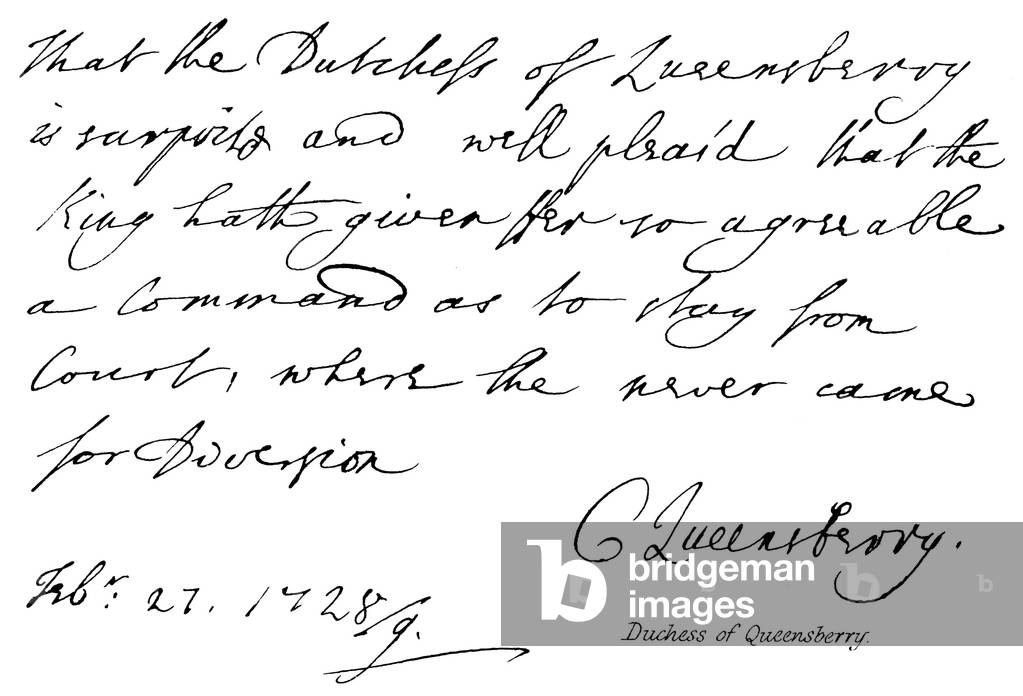 That the Dutchess of Queensberry
is surpris'd and well pleas'd that the
King hath given Her so agreeable
a Command as to stay from
Court, where she never came
for Diversion
C Queensberry.
Febr. 27. 1728/9.
bridgeman
images
b
b
b
Duchess of Queensberry.